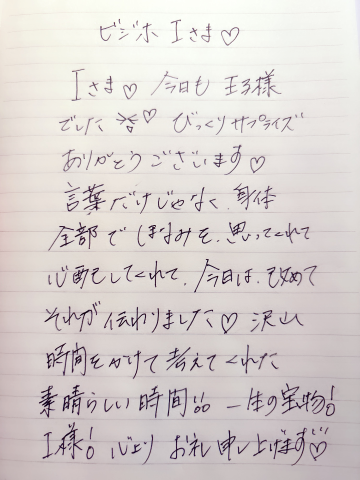 ビジホ Iさま♡
Iさま♡ 今日も 王子様
でした ♡ びっくりサプライズ
ありがとうございます♡
言葉だけじゃなく、身体
全部で ほなみを、思ってくれて
心配してくれて、今日は、改めて
それが伝わりました♡ 沢山
時間をかけて考えてくれた
素晴らしい時間!! 一生の宝物!
I様! 心より お礼申し上げます♡